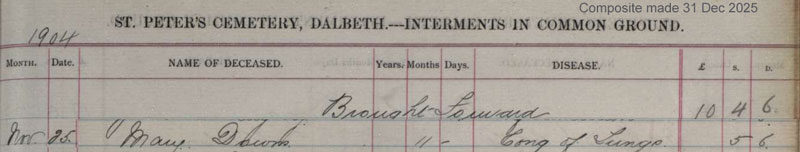 Composite made 31 Dec 2025
ST. PETER'S CEMETERY, DALBETH.—INTERMENTS IN COMMON GROUND.
1904
MONTH. Date. NAME OF DECEASED. Years. Months Days. DISEASE. £ S. D.
Brought Forward 10 4 6.
Nov. 25. " Mary 11 - Cong of Lungs 5 6.